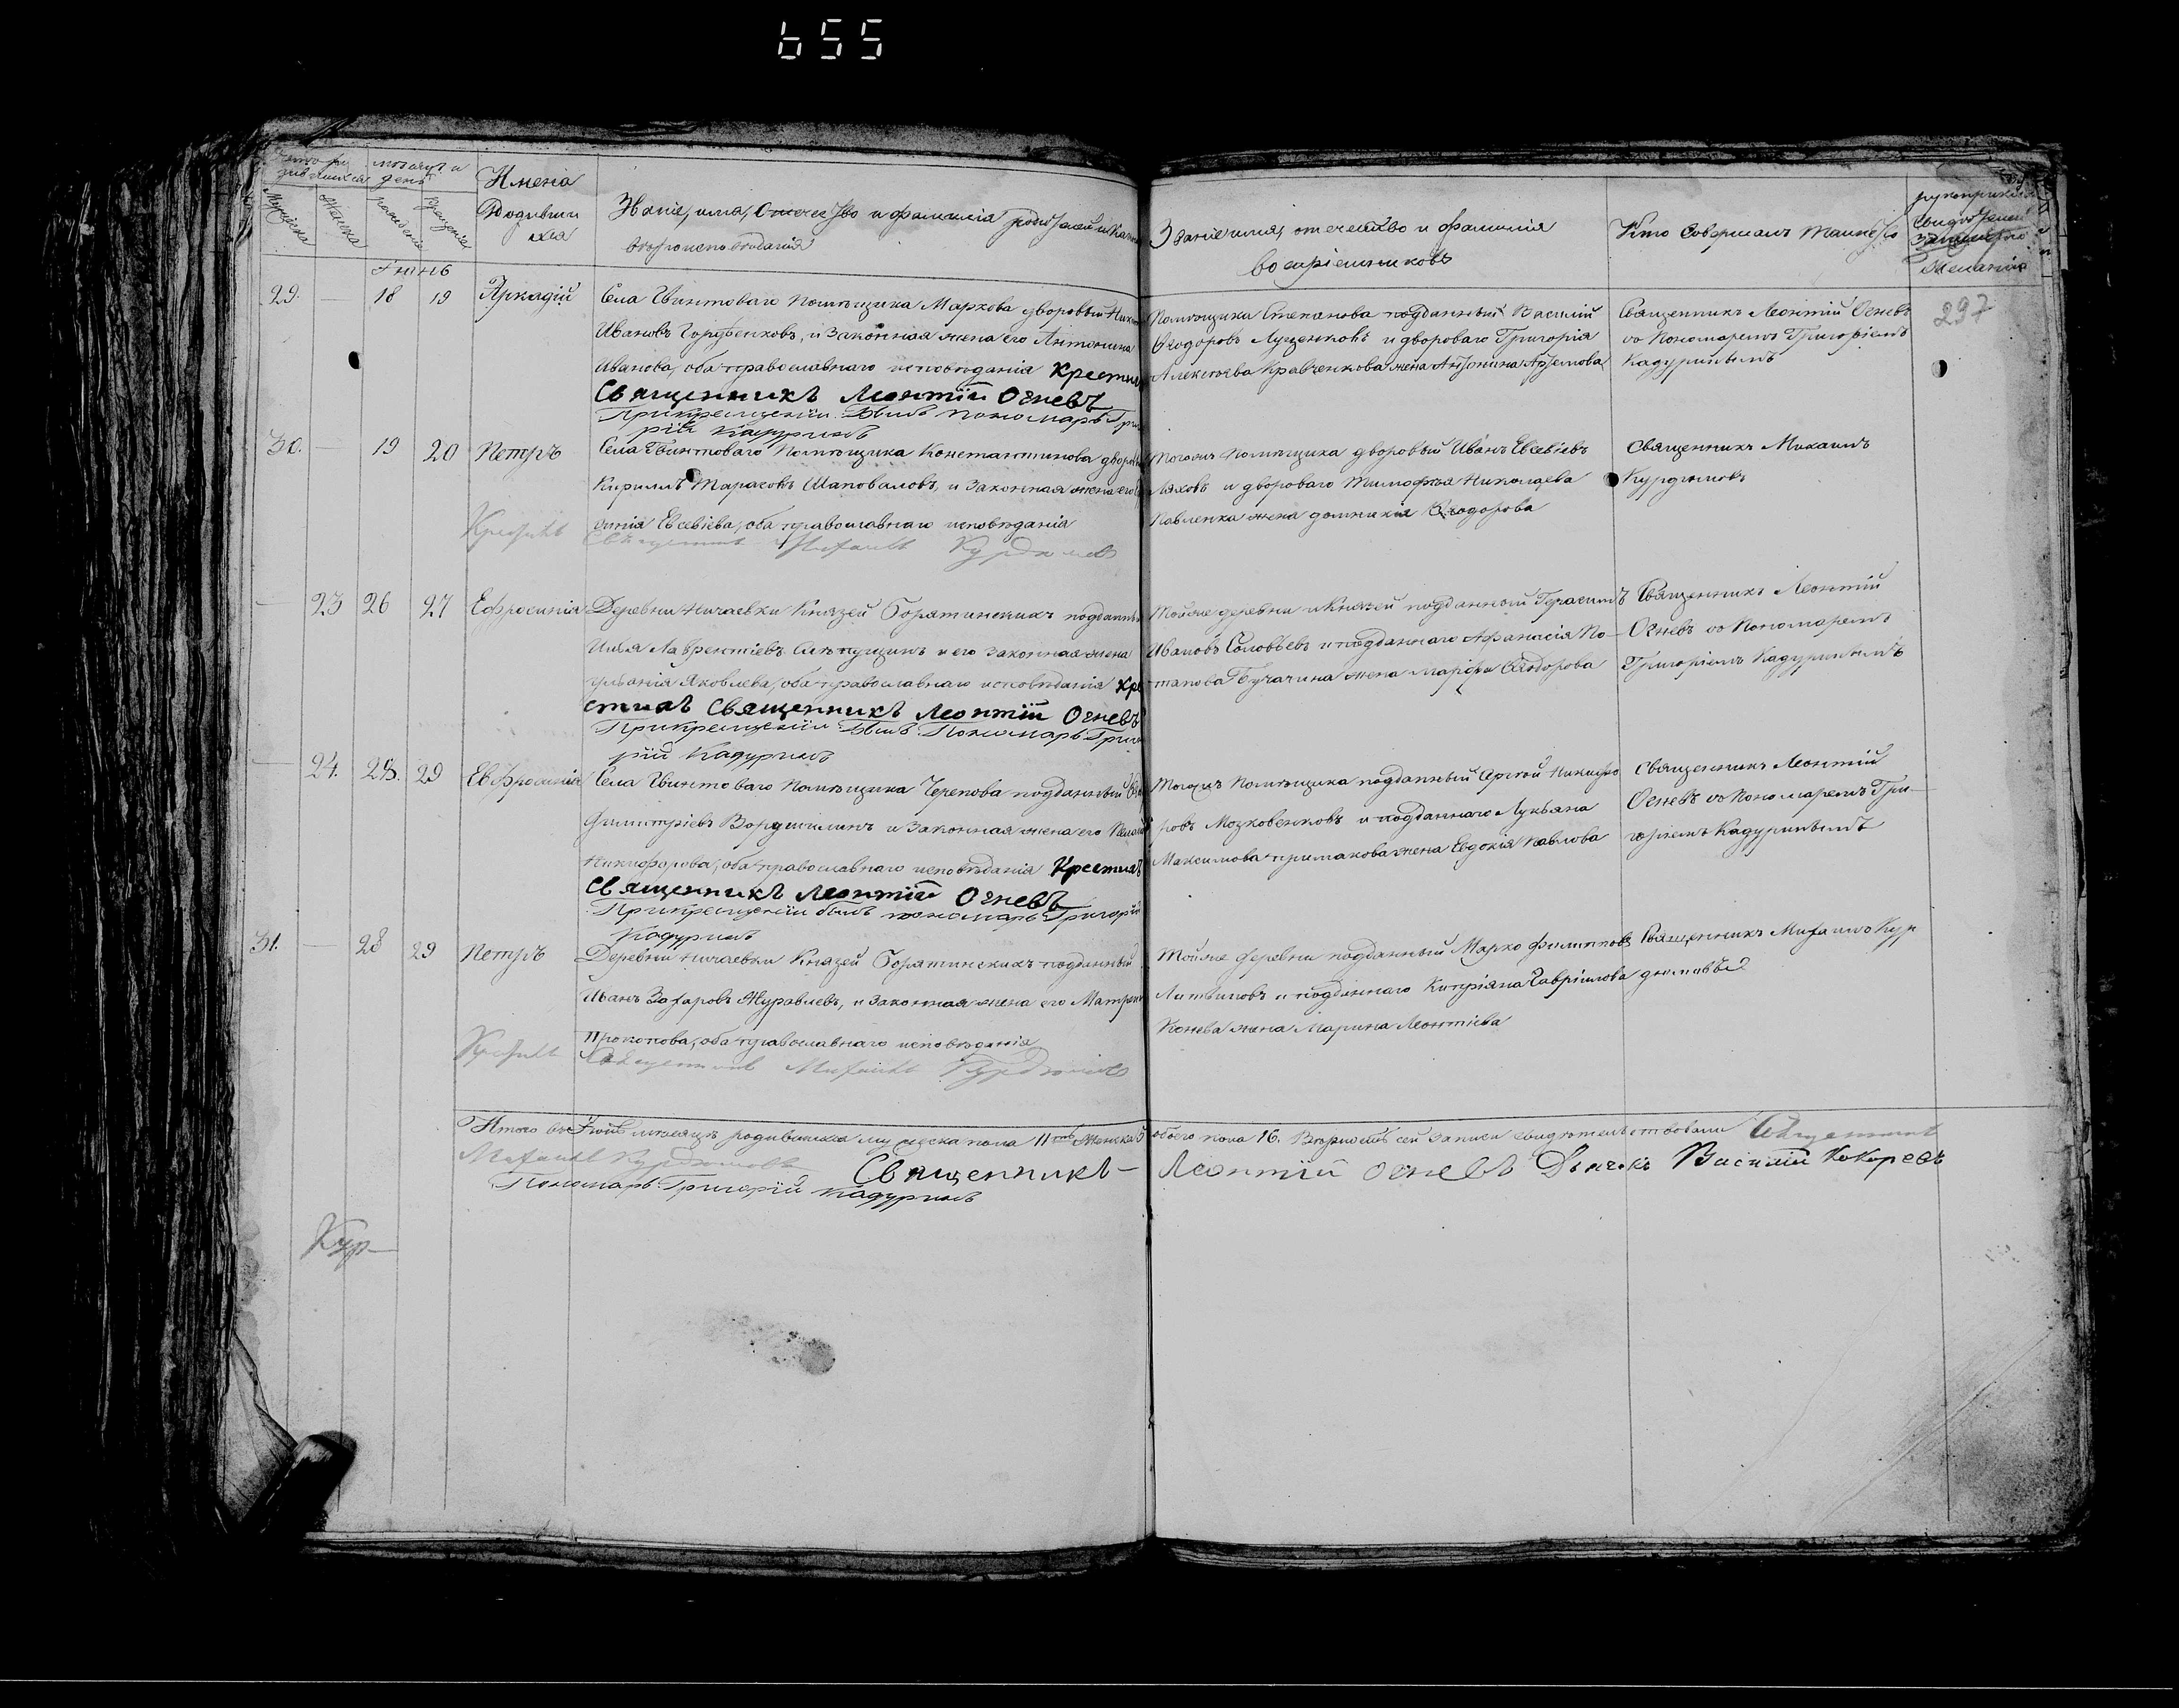 655
мѣсяцъ и
день
Мужеска
Женска
рожденіе
крещеніе
Имена
Родивши
хся
Званіе, имя, Отечество и фамилія родителей и како
вѣроисповѣданія
Званіе имя, отечество и фамилія
воспріемниковъ
Кто Совершалъ таинство
рукоприкла
Свидѣтелей
желанію
297
Іюнь
29. — 18 19 Аркадій
Села Гвинтоваго Помѣщика Маркова дворовый
Ивановъ Горбенковъ, и Законная жена его Антонина
Иванова, оба православнаго исповѣданія Крестилъ
Священникъ Леонтій Огневъ
При крещеніи Былъ пономарь Гри
рій Кадуринъ
Помѣщика Степанова подданный Василій
Ѳеодоровъ Луценковъ и двороваго Григорія
Алексѣева Кравченкова жена Антонина Артемова
Священникъ Леонтій Огневъ
со Пономаремъ Григоріемъ
Кадуринымъ
30. — 19 20 Петръ
Села Гвинтоваго Помѣщика Константинова дворовый
Кириллъ Тарасовъ Шаповаловъ, и Законная жена его
Евсевіева, оба православнаго исповѣданія
Крестилъ Священникъ Михаилъ Курдюмовъ
Тогожъ помѣщика дворовый Иванъ Евсевіевъ
Ляховъ и двороваго Тимофѣя Николаева
Павленка жена домникія Ѳеодорова
Священникъ Михаилъ
Курдюмовъ
— 23 26 27 Ефросинія
Деревни Ничаевки Князей Борятинскихъ подданный
Илья Лаврентіевъ и его законная жена
Яковлева, оба православнаго исповѣданія Кре
стилъ Священникъ Леонтій Огневъ
При крещеніи Былъ Пономарь Григо
рій Кадуринъ
Тойже деревни и Князей подданный Герасимъ
Ивановъ Соловьевъ и подданнаго Афанасія По-
тапова Бучачина жена Марфа Ѳеодорова
Священникъ Леонтій
Огневъ со Пономаремъ
Григоріемъ Кадуринымъ
— 24. 28. 29 Евфросинія
Села Гвинтоваго Помѣщика Черепова подданный
Димитріевъ и Законная жена его
Никифорова, оба православнаго исповѣданія Крестилъ
Священникъ Леонтій Огневъ
При крещеніи былъ пономарь Григорій
Кадуринъ
Тогожъ Помѣщика подданный Сергѣй Никифо
ровъ Мозковенковъ и подданнаго Лукьяна
Максимова Примакова жена Евдокія Павлова
Священникъ Леонтій
Огневъ со Пономаремъ Гри-
горіемъ Кадуринымъ
31. — 28 29 Петръ
Деревни Ничаевки Князей Борятинскихъ подданный
Иванъ Захаровъ Журавлевъ, и Законная жена его Матрена
Прокопова, оба православнаго исповѣданія
Крестилъ Священникъ Михаилъ Курдюмовъ
Тойже деревни подданный Марко Филипповъ
Литвиновъ и подданнаго Кипріяна Гавріилова
Конева жена Марина Леонтіева
Священникъ Михаилъ Кур
дюмовъ
Итого въ Іюнѣ мѣсяцѣ родившихся мужеска пола 11 Женска 5 обоего пола 16. Вѣрность сей Записи свидѣтельствовали Священникъ
Михаилъ Курдюмовъ Священникъ — Леонтій Огневъ Дьячекъ Василій Кокоревъ
Пономарь Григорій Кадуринъ
Кур